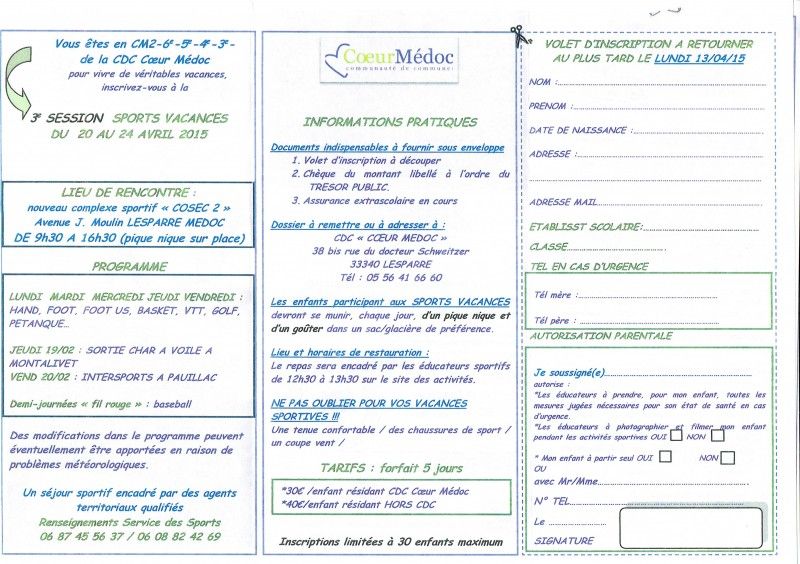 Vous êtes en CM2-6e-5e-4e-3e-
de la CDC Cœur Médoc
pour vivre de véritables vacances,
inscrivez-vous à la
3e SESSION SPORTS VACANCES
DU 20 AU 24 AVRIL 2015
LIEU DE RENCONTRE :
nouveau complexe sportif « COSEC 2 »
Avenue J. Moulin LESPARRE MEDOC
DE 9h30 A 16h30 (pique nique sur place)
PROGRAMME
LUNDI MARDI MERCREDI JEUDI VENDREDI :
HAND, FOOT, FOOT US, BASKET, VTT, GOLF,
PETANQUE...
JEUDI 19/02 : SORTIE CHAR A VOILE A
MONTALIVET
VEND 20/02 : INTERSPORTS A PAUILLAC
Demi-journées « fil rouge » : baseball
Des modifications dans le programme peuvent
éventuellement être apportées en raison de
problèmes météorologiques.
Un séjour sportif encadré par des agents
territoriaux qualifiés
Renseignements Service des Sports
06 87 45 56 37 / 06 08 82 42 69
CœurMédoc
communauté de communes
INFORMATIONS PRATIQUES
Documents indispensables à fournir sous enveloppe
1. Volet d'inscription à découper
2. Chèque du montant libellé à l'ordre du
TRESOR PUBLIC.
3. Assurance extrascolaire en cours
Dossier à remettre ou à adresser à :
CDC « CŒUR MEDOC »
38 bis rue du docteur Schweitzer
33340 LESPARRE
Tél : 05 56 41 66 60
Les enfants participant aux SPORTS VACANCES
devront se munir, chaque jour, d'un pique nique et
d'un goûter dans un sac/glacière de préférence.
Lieu et horaires de restauration :
Le repas sera encadré par les éducateurs sportifs
de 12h30 à 13h30 sur le site des activités.
NE PAS OUBLIER POUR VOS VACANCES
SPORTIVES !!!
Une tenue confortable / des chaussures de sport /
un coupe vent /
TARIFS : forfait 5 jours
*30€ /enfant résidant CDC Cœur Médoc
*40€/enfant résidant HORS CDC
Inscriptions limitées à 30 enfants maximum
VOLET D'INSCRIPTION A RETOURNER
AU PLUS TARD LE LUNDI 13/04/15
NOM :
PRENOM :
DATE DE NAISSANCE :
ADRESSE :
ADRESSE MAIL
ETABLISST SCOLAIRE:
CLASSE
TEL EN CAS D'URGENCE
Tél mère :
Tél père :
AUTORISATION PARENTALE
Je soussigné(e)
autorise :
*Les éducateurs à prendre, pour mon enfant, toutes les
mesures jugées nécessaires pour son état de santé en cas
d'urgence.
*Les éducateurs à photographier et filmer mon enfant
pendant les activités sportives OUI NON
* Mon enfant à partir seul OUI NON
OU
avec Mr/Mme
N° TEL
Le
SIGNATURE